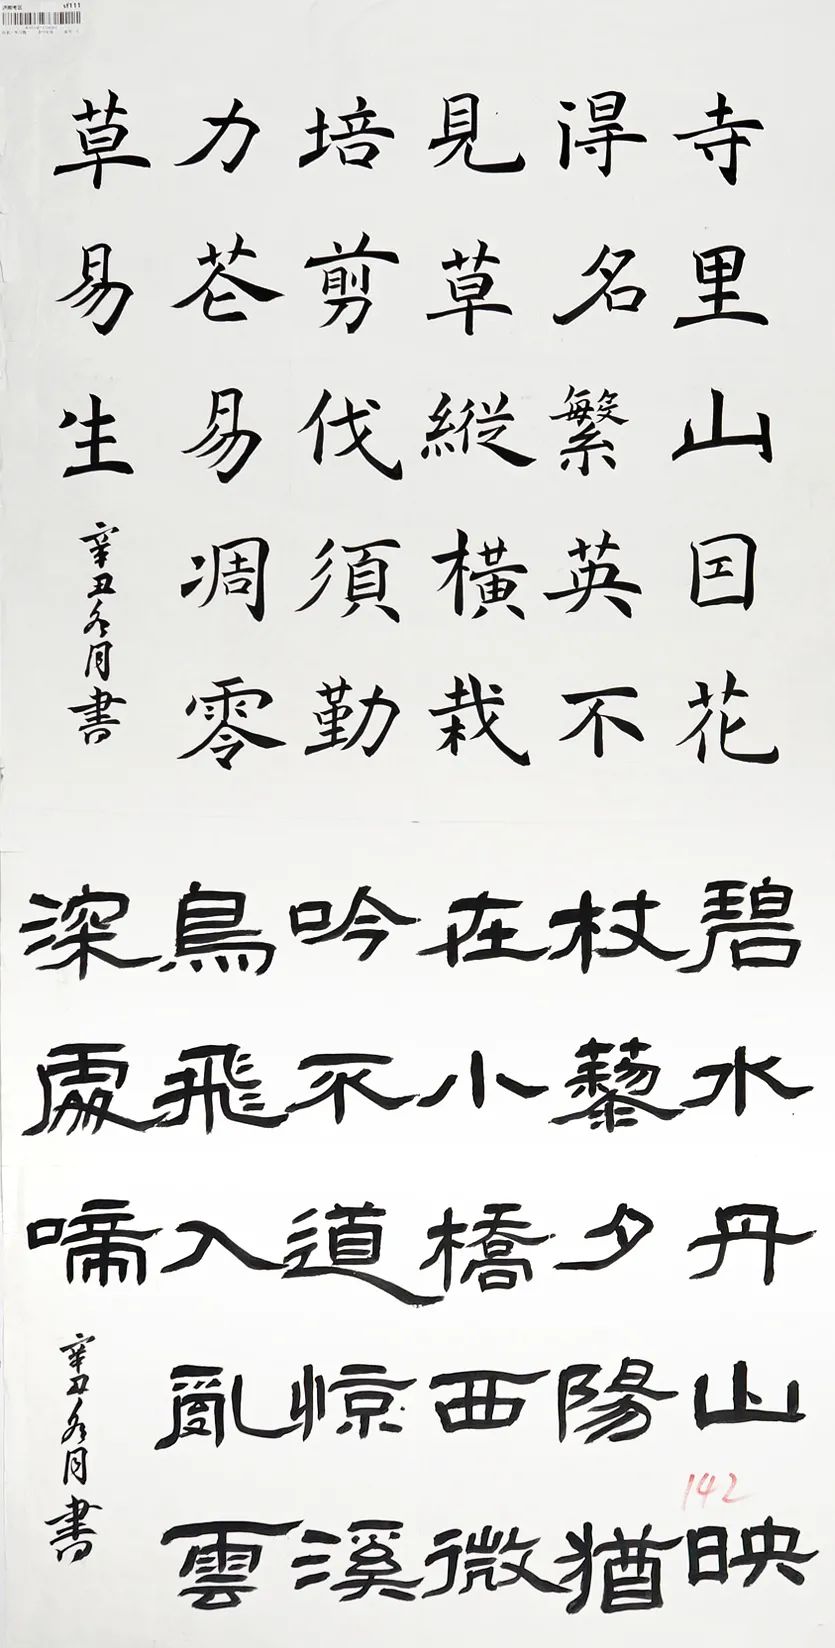 济南考区
sf111
寺里山囙花
淂名繁英不
見草縱橫栽
培剪伐須勤
力芲易凋零
草易生
辛丑冬月書
碧水丹山映
杖藜夕陽猶
在小橋西微
吟不道惊溪
鳥飛入亂雲
深處啼
辛丑冬月書
142